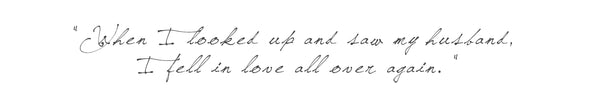 "When I looked up and saw my husband,
I fell in love all over again."